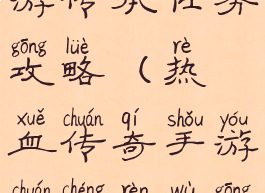 游传承任务
gōng lüè rè
攻略（热
xuě chuán qí shǒu yóu
血传奇手游
chuán chéng rèn wù gōng